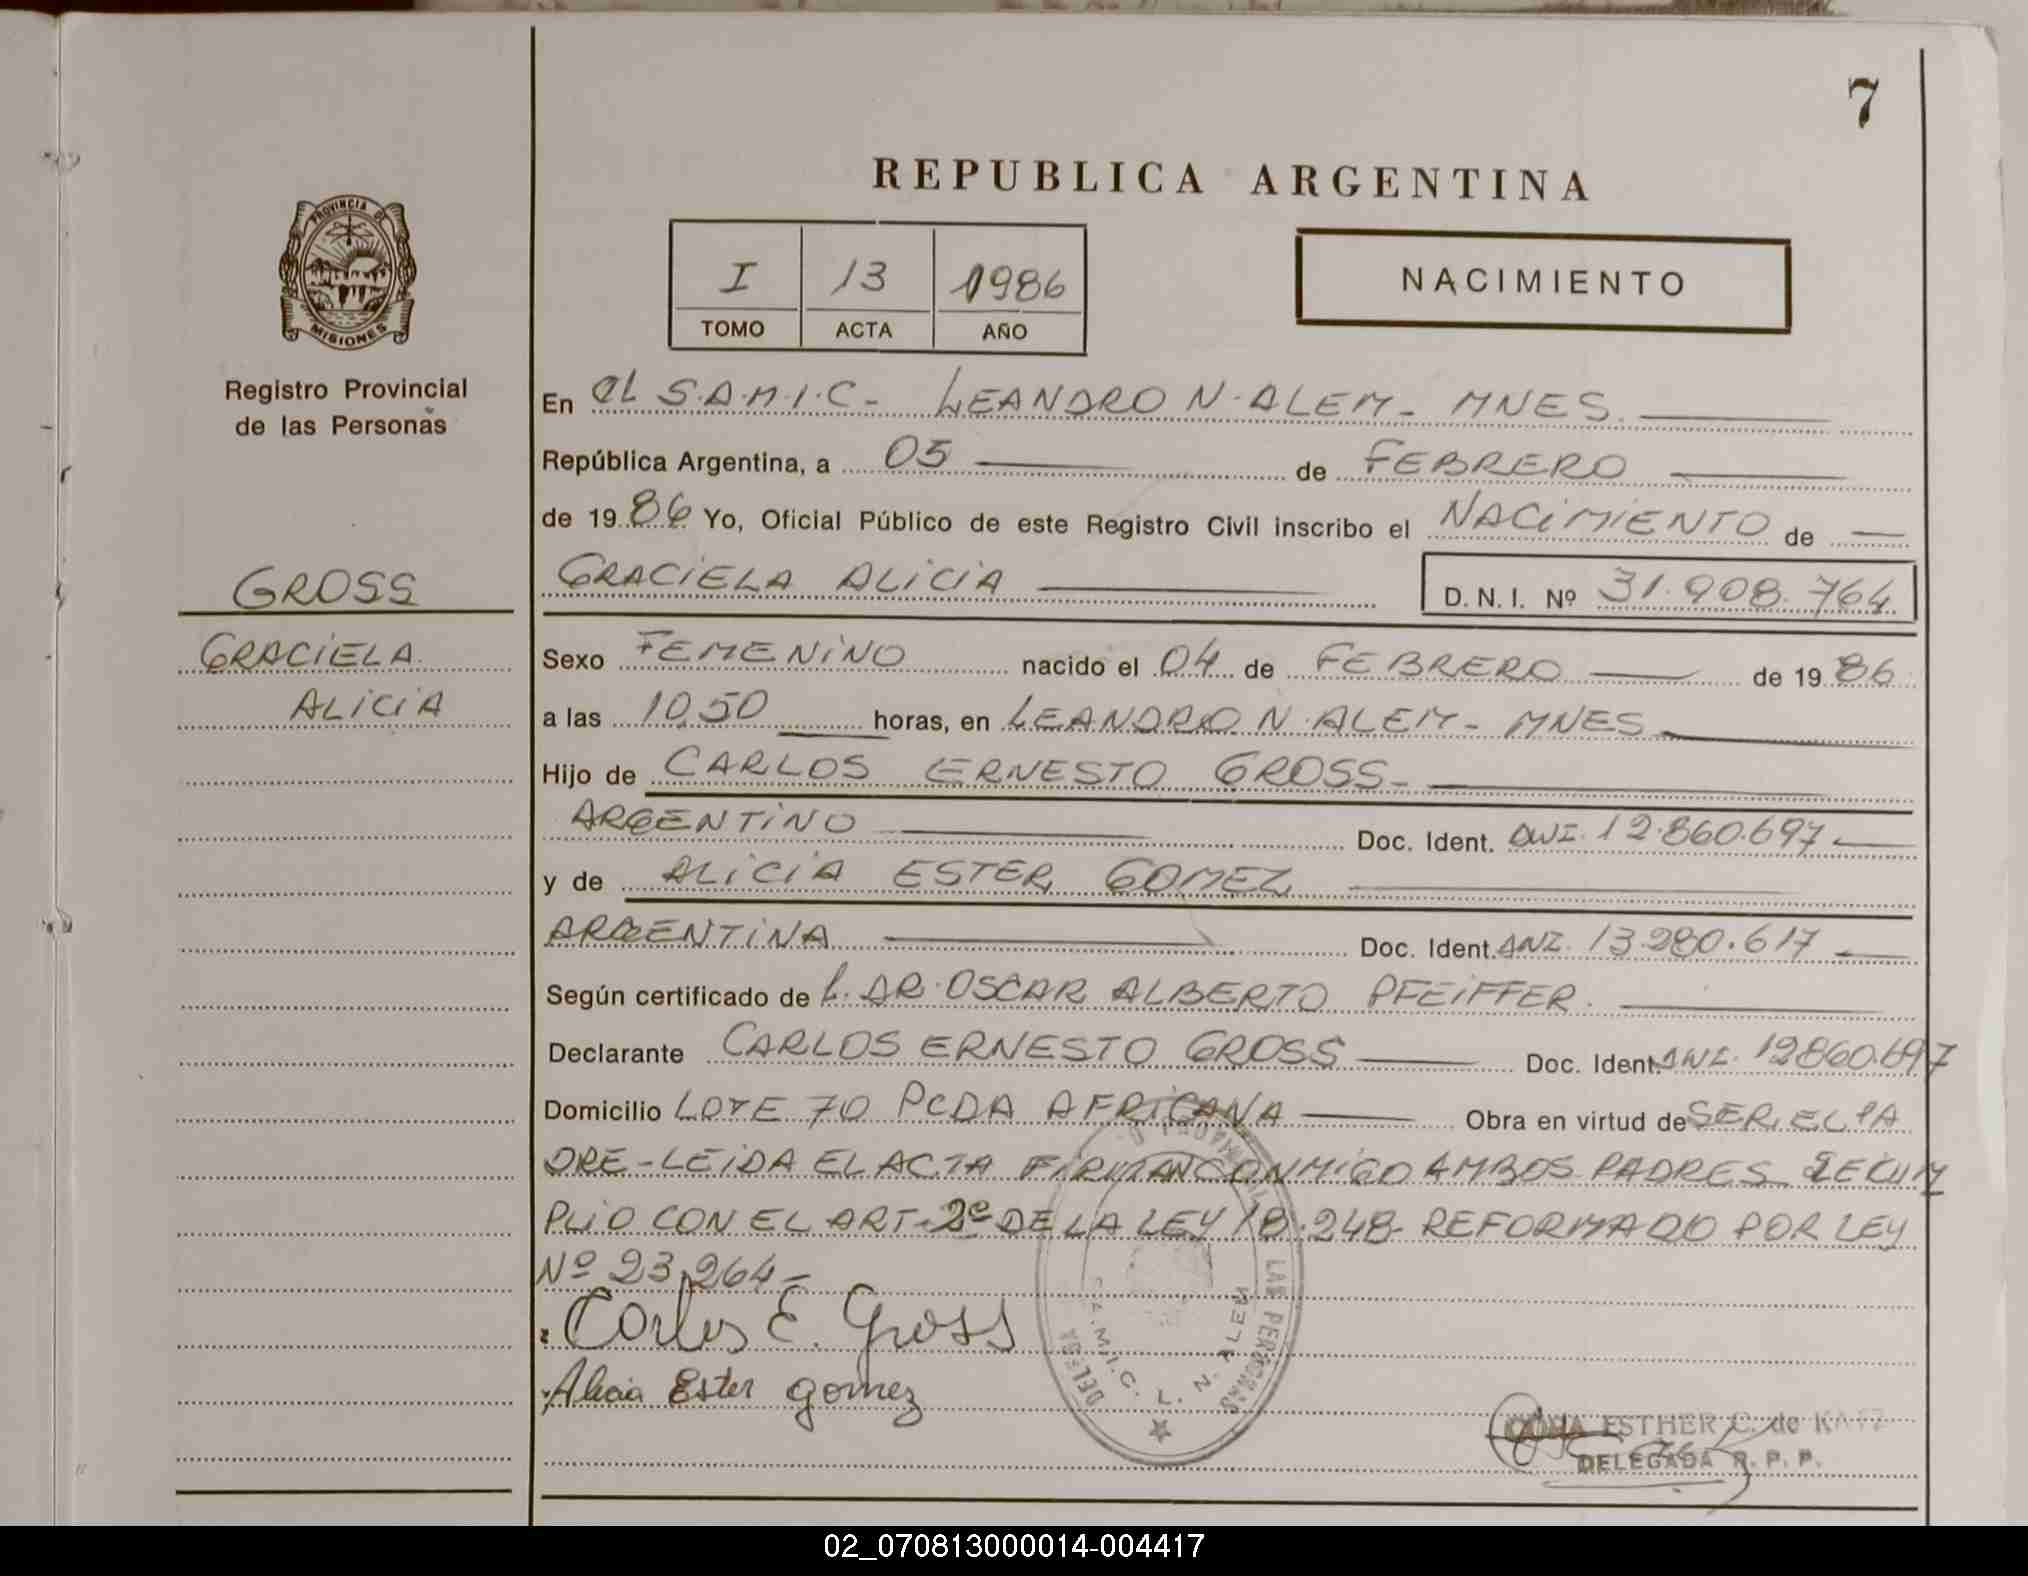 7
REPUBLICA ARGENTINA
PROVINCIA DE
MISIONES
Registro Provincial
de las Personas
I 13 1986
TOMO ACTA AÑO
NACIMIENTO
GROSS
GRACIELA
ALICIA
En EL S.A.M.I.C- LEANDRO N. ALEM- MNES.
República Argentina, a 05 de FEBRERO
de 1986 Yo, Oficial Público de este Registro Civil inscribo el NACIMIENTO de
GRACIELA ALICIA D.N.I. Nº 31.908.764
Sexo FEMENINO nacido el 04 de FEBRERO de 1986
a las 10,50 horas, en LEANDRO N. ALEM- MNES
Hijo de CARLOS ERNESTO GROSS-
ARGENTINO Doc. Ident. DNI. 12.860.697
y de ALICIA ESTER GOMEZ
ARGENTINA Doc. Ident. DNI. 13.280.617
Según certificado de DR. OSCAR ALBERTO PFEIFFER.
Declarante CARLOS ERNESTO GROSS Doc. Ident. DNI. 12860.697
Domicilio LOTE 70 PCDA AFRICANA Obra en virtud de SER EL PA
DRE-LEIDA EL ACTA FIRMAN CONMIGO AMBOS PADRES SE CUM
PLIO CON EL ART. 2º DE LA LEY 18.248- REFORMADO POR LEY
Nº 23.264-
Carlos E. Gross
Alicia Ester gomez
LAS PERSONAS
S.A.M.I.C. L. N. ALEM
ESTHER C. de KATZ
DELEGADA R. P. P.
02_070813000014-004417